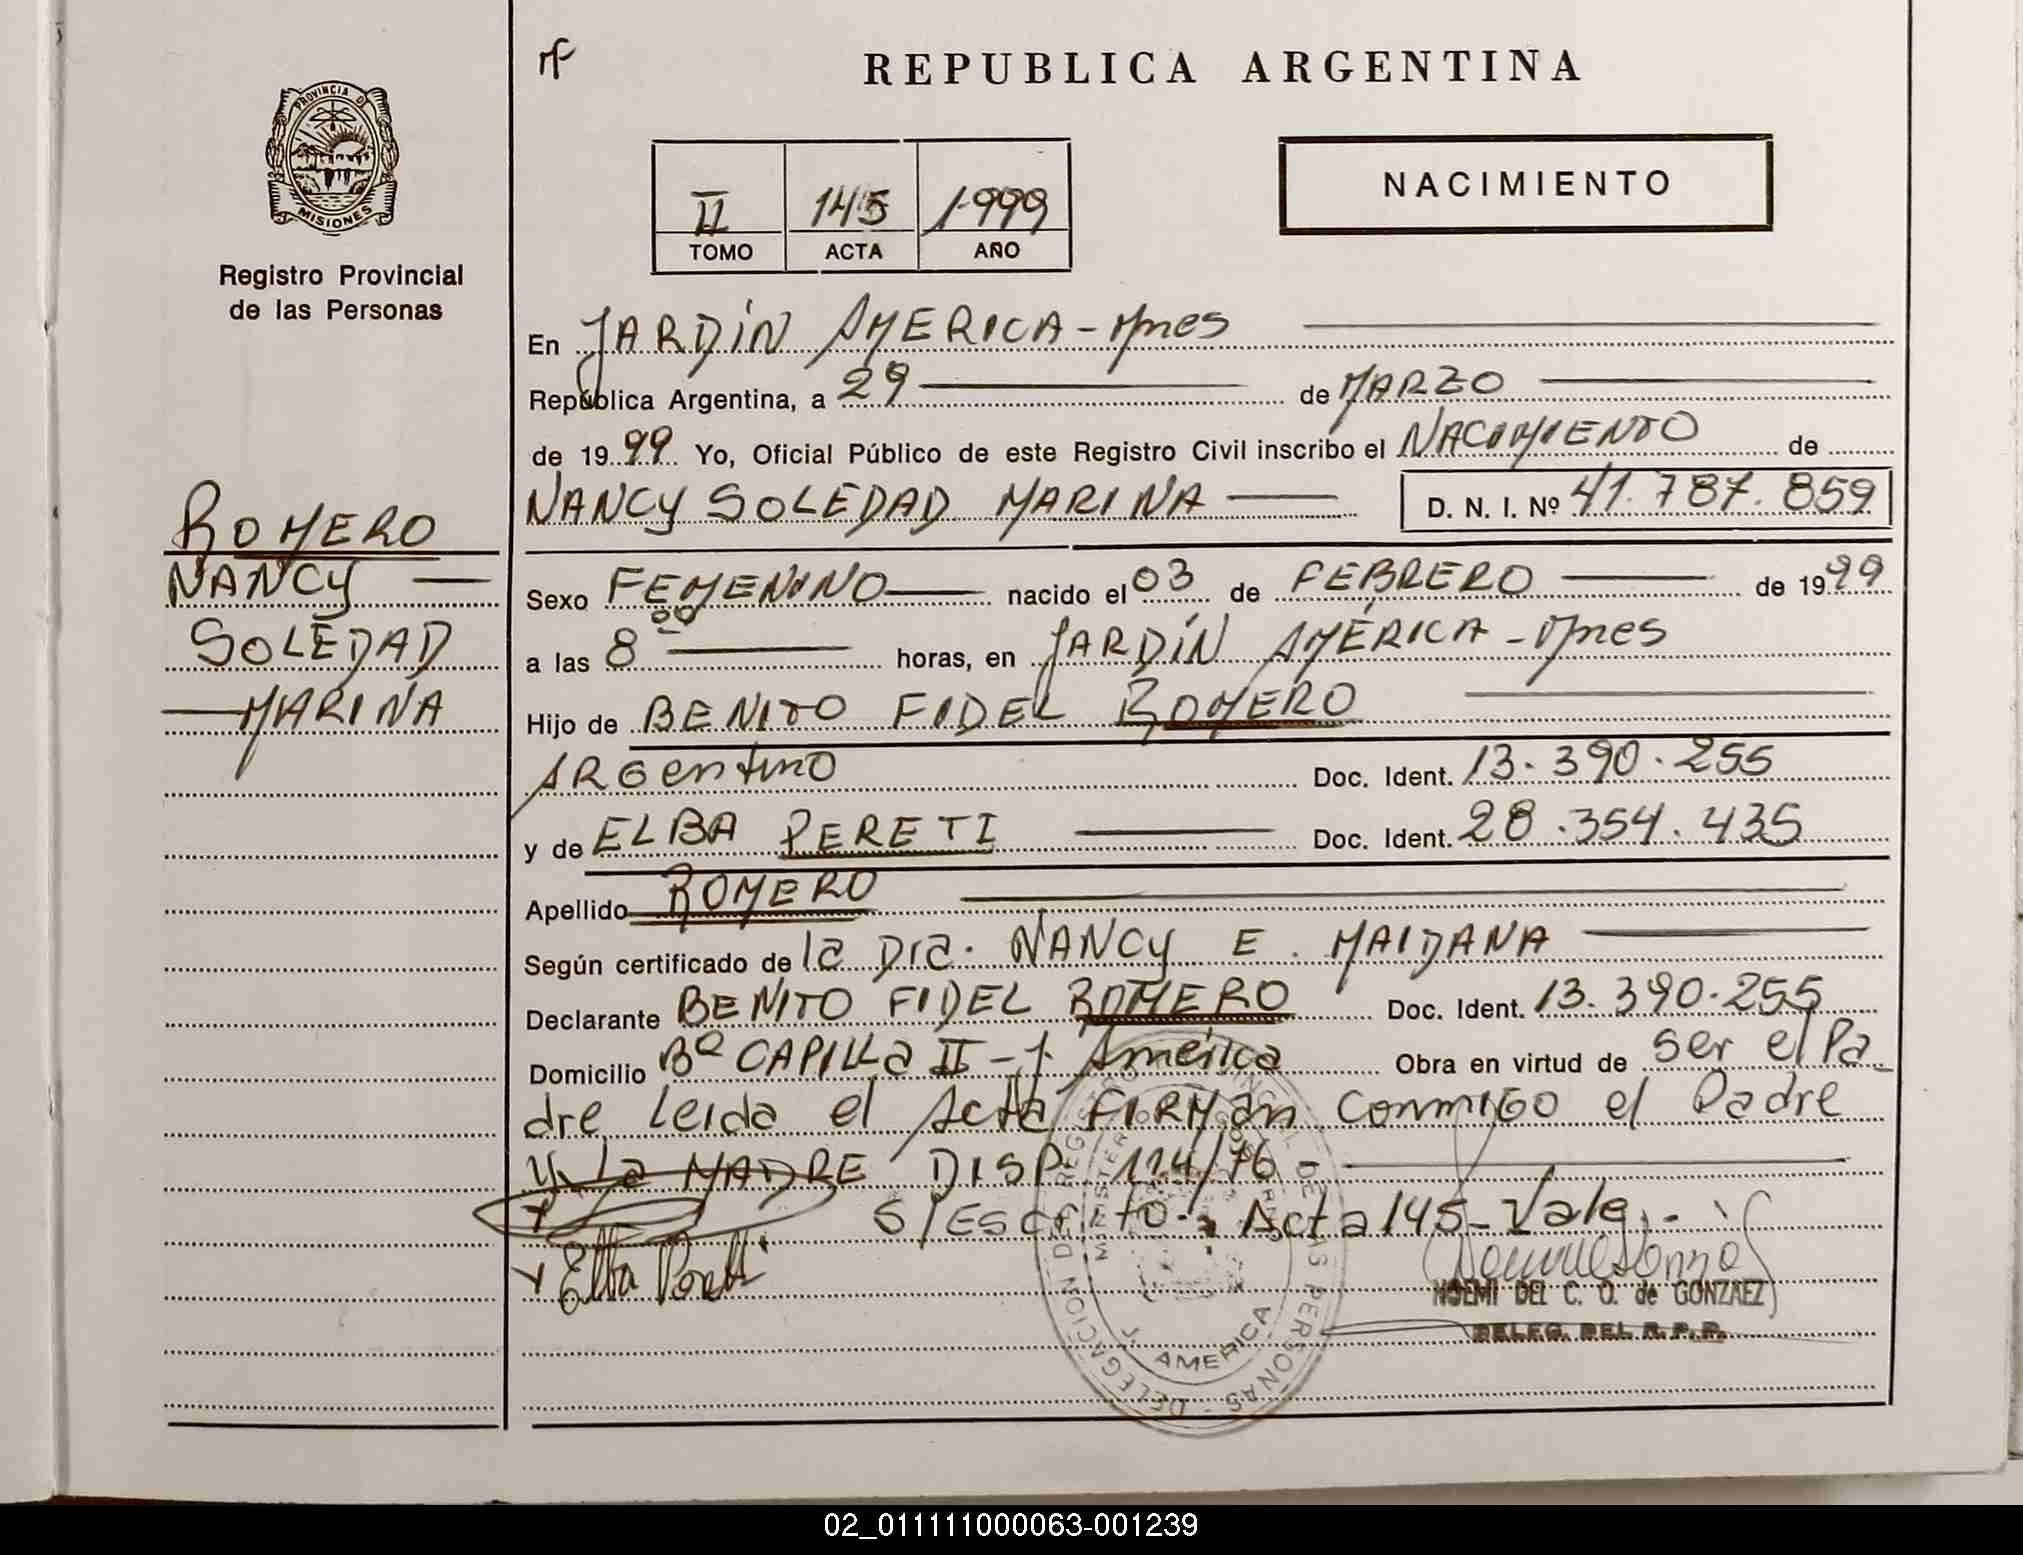 rf
REPUBLICA ARGENTINA
PROVINCIA DE
MISIONES
Registro Provincial
de las Personas
II 145 1999
TOMO ACTA AÑO
NACIMIENTO
En JARDÍN AMERICA - Mnes
República Argentina, a 29 de MARZO
de 1999 Yo, Oficial Público de este Registro Civil inscribo el NACIMIENTO de
NANCY SOLEDAD MARINA D. N. I. Nº 41.787.859
ROMERO
NANCY
SOLEDAD
MARINA
Sexo FEMENINO nacido el 03 de FEBRERO de 1999
a las 8 00 horas, en JARDÍN AMÉRICA - Mnes
Hijo de BENITO FIDEL ROMERO
ARGentino Doc. Ident. 13.390.255
y de ELBA PERETI Doc. Ident. 28.354.435
Apellido ROMERO
Según certificado de la Dra. NANCY E. MAIDANA
Declarante BENITO FIDEL ROMERO Doc. Ident. 13.390.255
Domicilio Bº CAPILLa II - J. América Obra en virtud de ser el Pa
dre Leida el Acta FIRMan ConmiGO el Padre
y La MADRE DISP. 114/76 -
S/Escrito - Acta 145 - Vale. -
Elba Pereti
NOEMI DEL C. O. de GONZAEZ
DELEG. DEL R. P. P.
DELEGACION DEL REGISTRO PROVINCIAL DE LAS PERSONAS
J. AMERICA
02_011111000063-001239